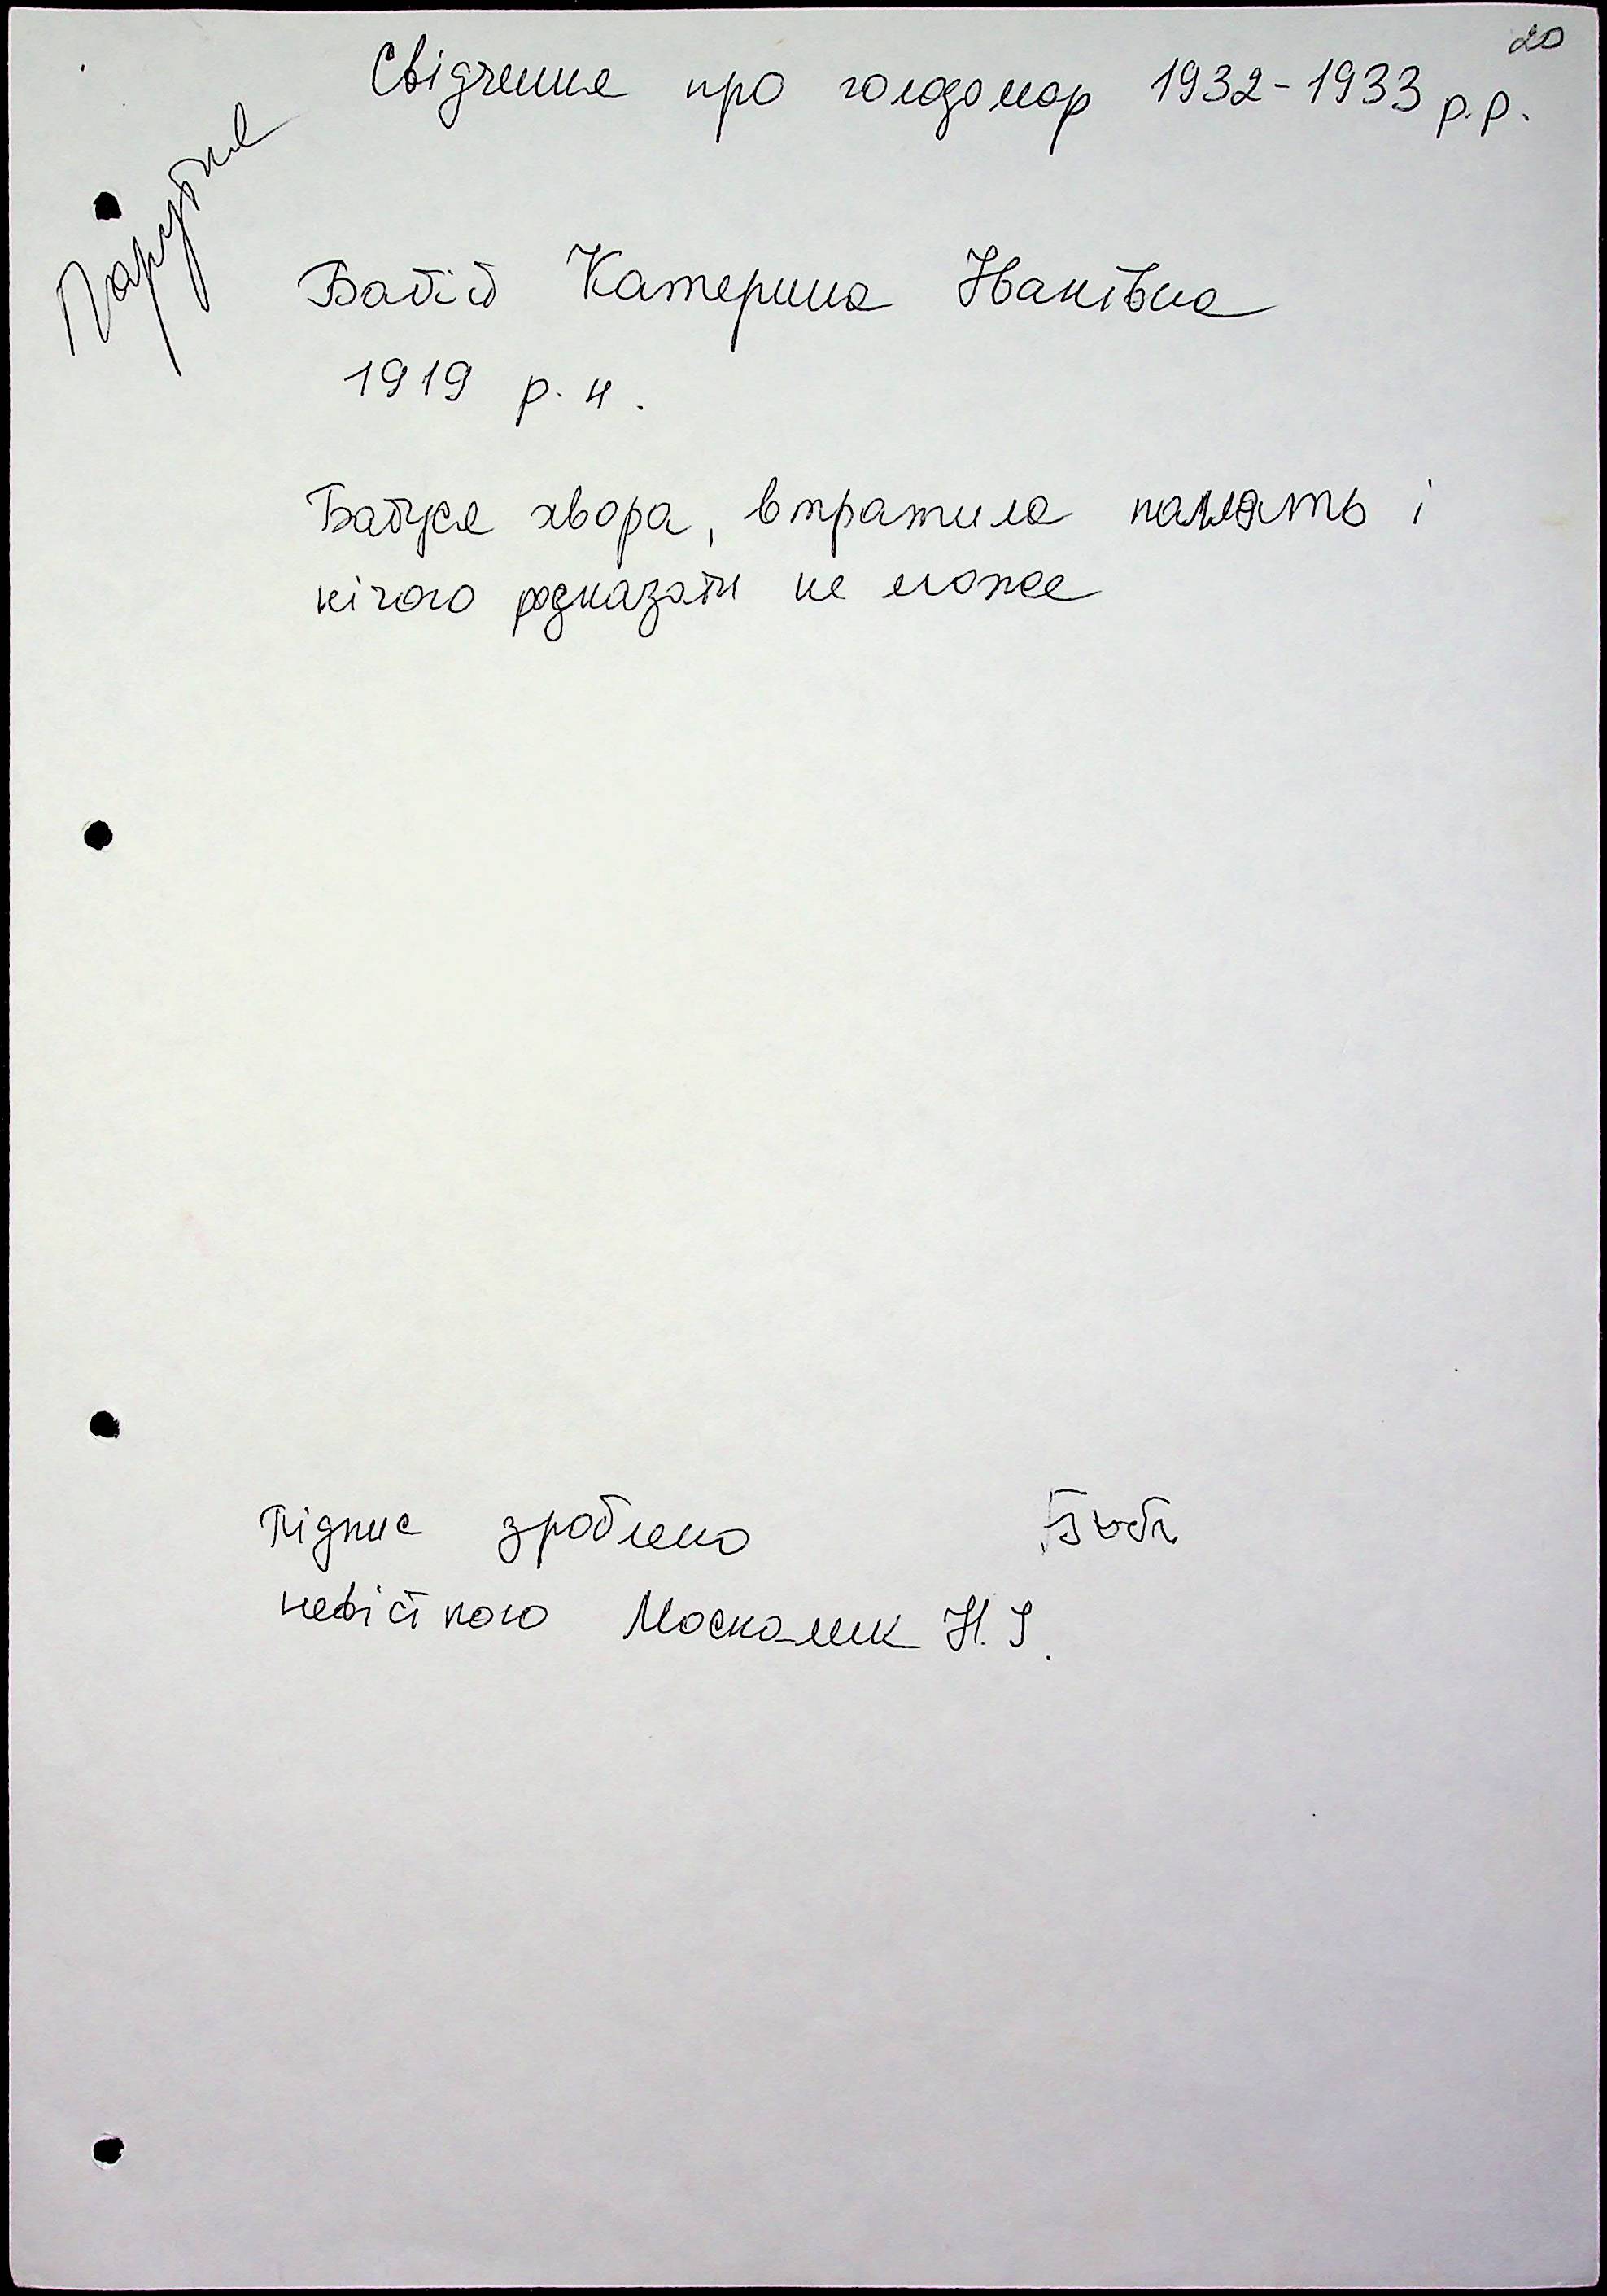 20
Свідчення про голодомор 1932-1933 р.р.
Бабій Катерина Іванівна
1919 р.н.
Бабуся хвора, втратила память і
нічого розказати не може
Підпис зроблено
невісткою Москалик Н.І.